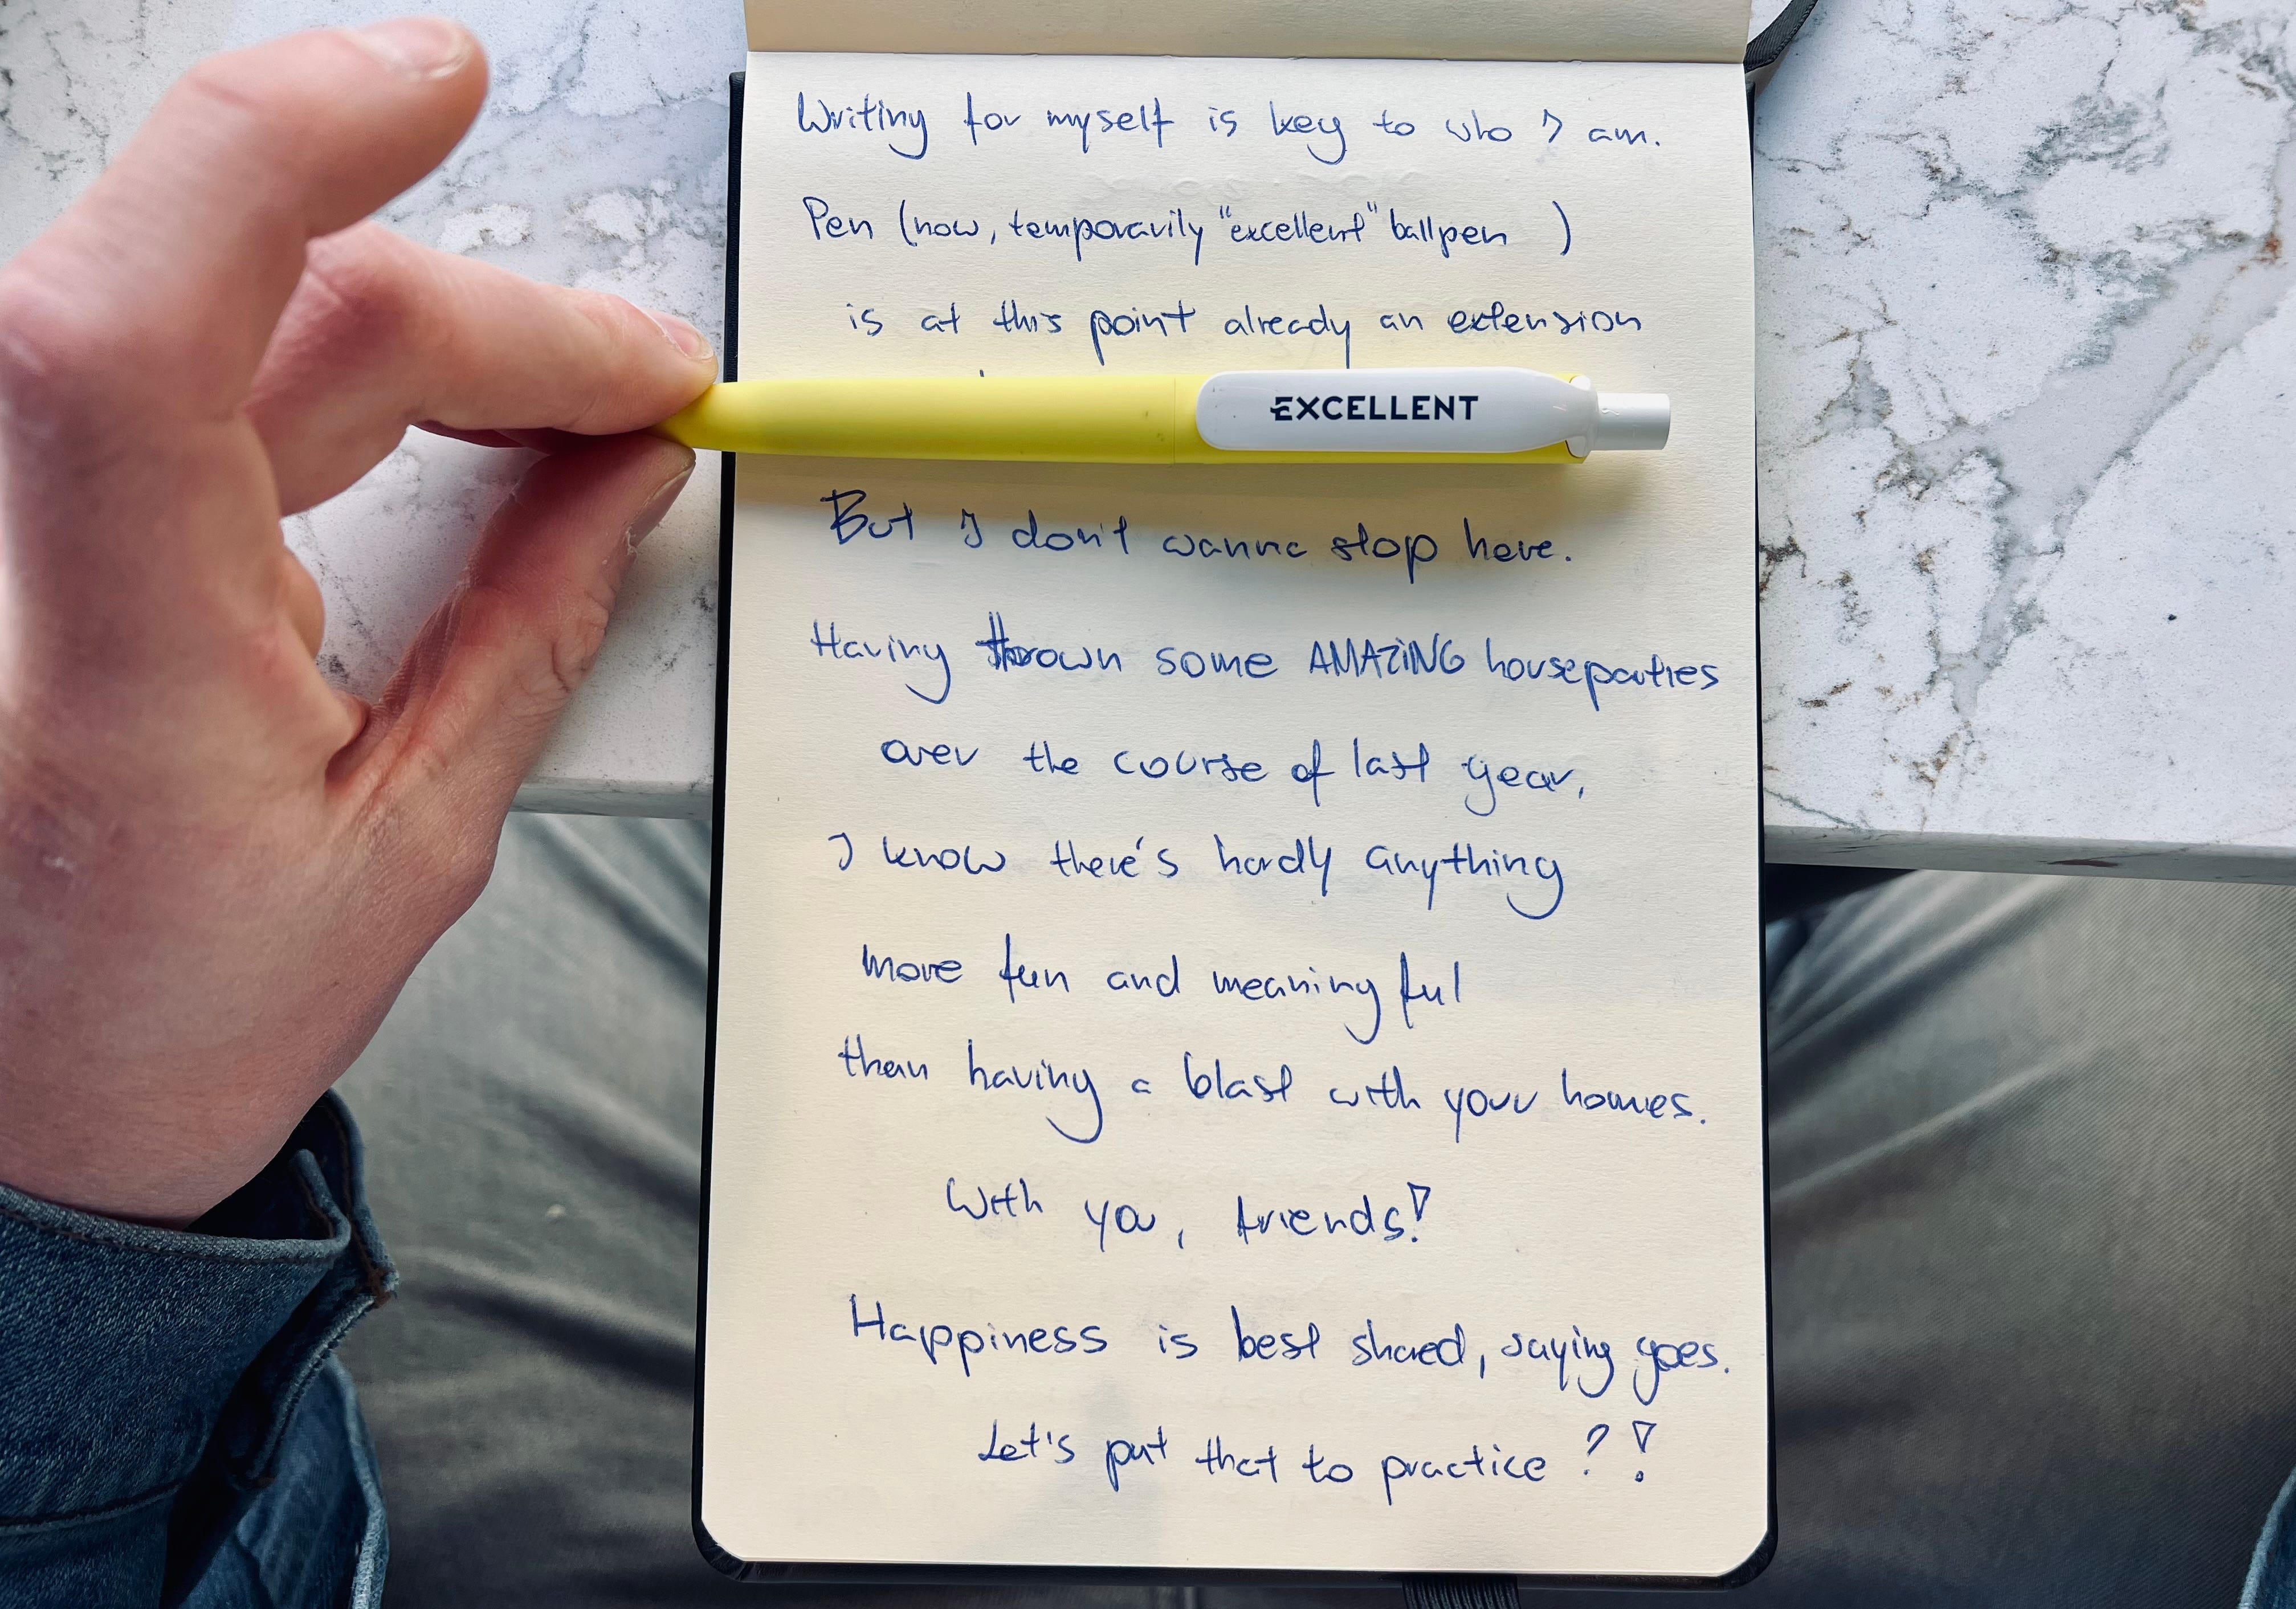 Writing for myself is key to who I am.
Pen (now, temporarily "excellent" ballpen )
is at this point already an extension
EXCELLENT
But I don't wanna stop here.
Having thrown some AMAZING houseparties
over the course of last year,
I know there's hardly anything
more fun and meaningful
than having a blast with your homies.
With you, friends!
Happiness is best shared, saying goes.
Let's put that to practice ?!